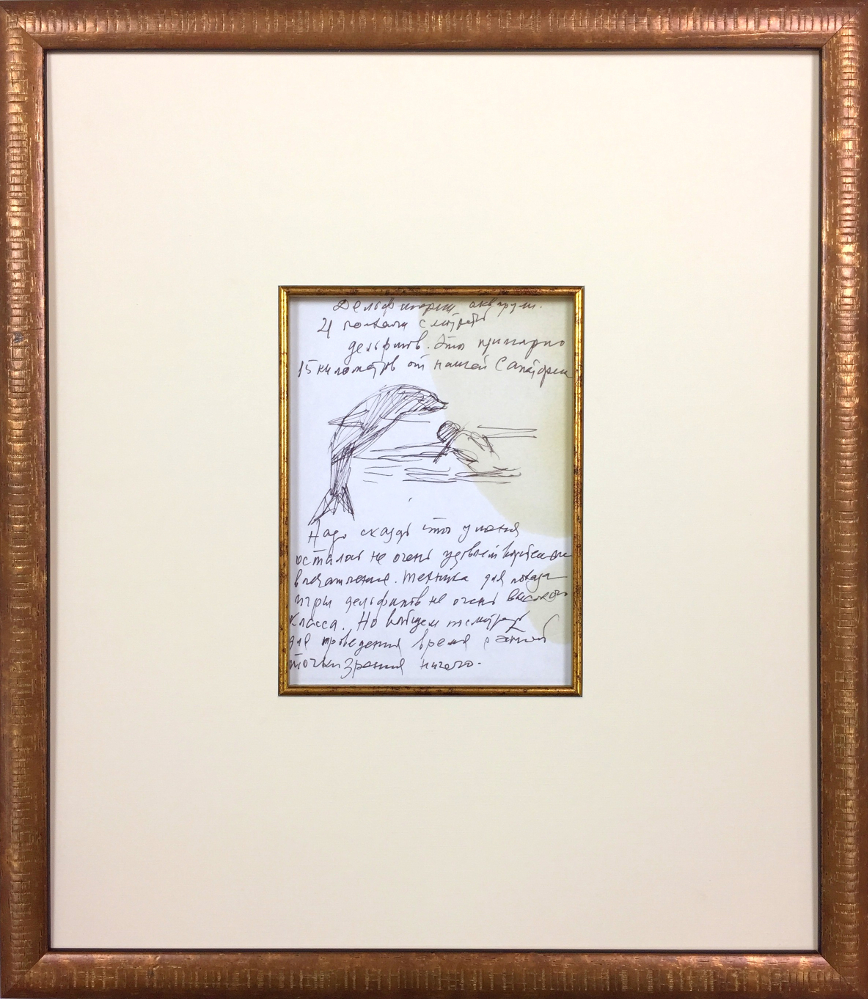 Дельфинарий аквариум.
21 поехали смотреть
дельфинов. Это примерно
15 километров от нашей Санатории
Надо сказать что у меня
осталось не очень
впечатление. Техника для показа
игры дельфинов не очень высокого
класса. Но вобщем смотреть
для проведения время с этой
точки зрения ничего.